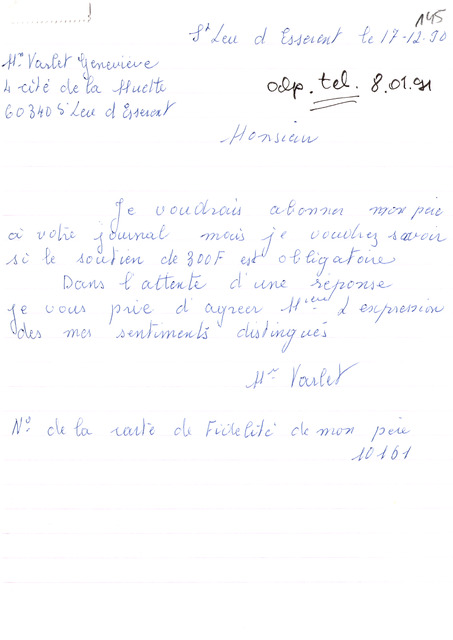 145
St Leu d Esserent le 17-12.90
Mme Varlet Geneviève
4 cité de la Muette
60340 St Leu d'Esserent
odp. tel. 8.01.91
Monsieur
Je voudrais abonner mon père
à votre journal mais je voudrez savoir
si le soutien de 300F est obligatoire
Dans l'attente d'une réponse
je vous prie d'agreer Mieur L'expression
des mes sentiments distingués
Me Varlet
No de la carte de Fidelité de mon père
10161